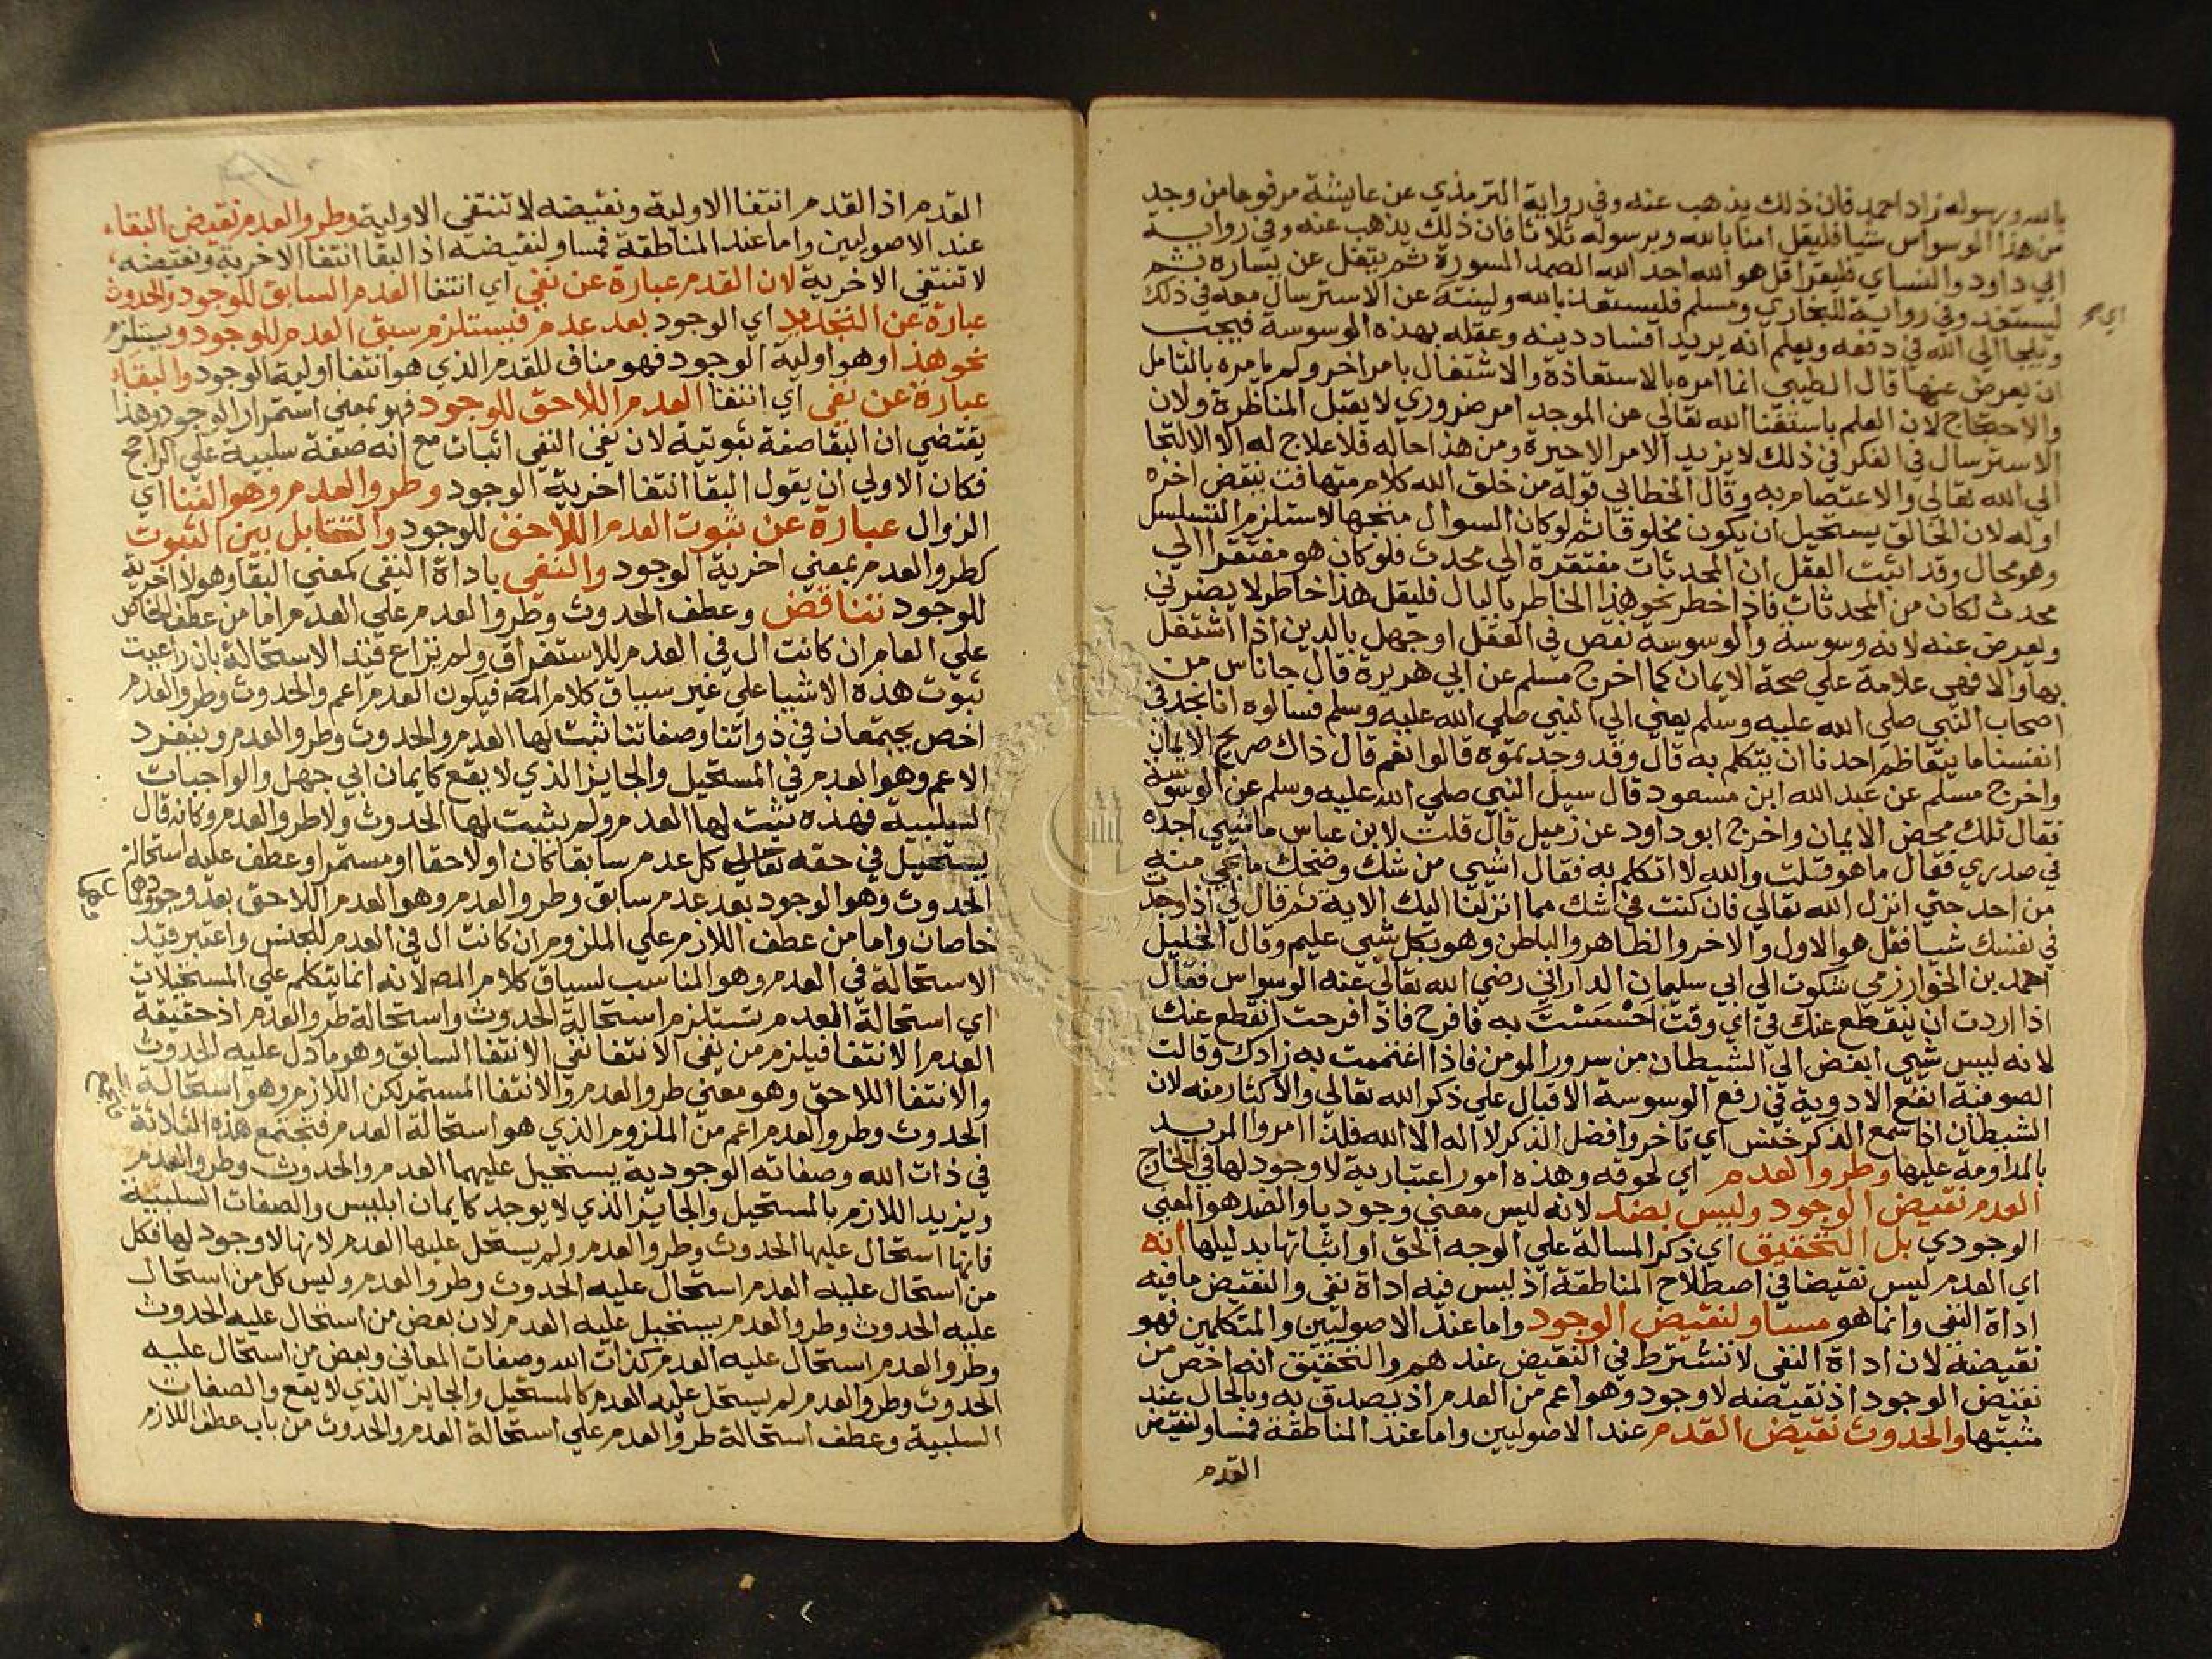 بالله ورسوله زاد احمد فان ذلك يذهب عنه وفي رواية الترمذي عن عايشة مرفوعا من وجد
من هذا الوسواس شيا فليقل امنا بالله وبرسوله ثلاثا فان ذلك يذهب عنه وفي رواية
ابي داود والنساي فليقرا قل هو الله احد الله الصمد السورة ثم يتفل عن يساره ثم
ليستعذ وفي رواية للبخاري ومسلم فليستعذ بالله ولينته عن الاسترسال معه في ذلك
ويلجا الي الله في دفعه ويعلم انه يريد افساد دينه وعقله بهذه الوسوسة فيجب
ان يعرض عنها قال الطيبي انما امره بالاستعاذة والاشتغال بامر اخر ولم يامره بالتامل
والاحتجاج لان العلم باستغنا الله تعالي عن الموجد امر ضروري لا يقبل المناظرة ولان
الاسترسال في الفكر في ذلك لا يزيد الامر الا حيرة ومن هذا حاله فلا علاج له الا الالتجا
الي الله تعالي والاعتصام به وقال الخطابي قوله من خلق الله كلام متهافت ينقض اخره
اوله لان الخالق يستحيل ان يكون مخلوقا ثم لو كان السوال متجها لاستلزم التسلسل
وهو محال وقد اثبت العقل ان المحدثات مفتقرة الي محدث فلو كان هو مفتقرا الي
محدث لكان من المحدثات فاذا خطر نحو هذا الخاطر بالبال فليقل هذا خاطر لا يضرني
ولعرض عنه لانه وسوسة والوسوسة نقص في العقل او جهل بالدين اذا اشتغل
بها والا فهي علامة علي صحة الايمان كما اخرج مسلم عن ابي هريرة قال جا ناس من
اصحاب النبي صلي الله عليه وسلم يعني الي النبي صلي الله عليه وسلم فسالوه انا نجد في
انفسنا ما يتعاظم احدنا ان يتكلم به قال وقد وجدتموه قالوا نعم قال ذاك صريح الايمان
واخرج مسلم عن عبد الله ابن مسعود قال سيل النبي صلي الله عليه وسلم عن الوسوسة
فقال تلك محض الايمان واخرج ابو داود عن زميل قال قلت لابن عباس ما شيي اجده
في صدري فقال ما هو قلت والله لا اتكلم به فقال اشيي من شك وضحك ما نجي منه
من احد حتي انزل الله تعالي فان كنت في شك مما انزلنا اليك الاية ثم قال لي اذا وجدت
في نفسك شيا فقل هو الاول والاخر والظاهر والباطن وهو بكل شيي عليم وقال الخليل
احمد بن الخوارزمي شكوت الي ابي سليمان الداراني رضي الله تعالي عنه الوسواس فقال
اذا اردت ان ينقطع عنك في اي وقت احسست به فافرح فاذا فرحت انقطع عنك
لانه ليس شيي ابغض الي الشيطان من سرور المومن فاذا اغتممت به زادك وقالت
الصوفية انفع الادوية في رفع الوسوسة الاقبال علي ذكر الله تعالي والاكثار منه لان
الشيطان اذا سمع الذكر خنس اي تاخر وافضل الذكر لا اله الا الله فلذا امروا المريد
بالمداومة عليها وطرو العدم اي لحوقه وهذه امور اعتبارية لا وجود لها في الخارج
العدم نقيض الوجود وليس بضد لانه ليس معني وجوديا والضد هو المعني
الوجودي بل التحقيق اي ذكر المسالة علي الوجه الحق او اثباتها بدليلها انه
اي العدم ليس نقيضا في اصطلاح المناطقة اذ ليس فيه اداة نفي والنقيض ما فيه
اداة النفي وانما هو مساو لنقيض الوجود واما عند الاصوليين والمتكلمين فهو
نقيضه لان اداة النفي لا تشترط في النقيض عندهم والتحقيق انه اخص من
نقيض الوجود اذ نقيضه لا وجود وهو اعم من العدم اذ يصدق به وبالحال عند
مثبتها والحدوث نقيض القدم عند الاصوليين واما عند المناطقة فمساو لنقيض
القدم
القدم اذ القدم انتفا الاولية ونقيضه لا تنتفي الاولية وطرو العدم نقيض البقاء
عند الاصوليين واما عند المناطقة فمساو لنقيضه اذ البقا انتفا الاخرية ونقيضه
لا تنتفي الاخرية لان القدم عبارة عن نفي اي انتفا العدم السابق للوجود والحدوث
عبارة عن التجدد اي الوجود بعد عدم فيستلزم سبق العدم للوجود ويستلزم
نحو هذا وهو اولية الوجود فهو مناف للقدم الذي هو انتفا اولية الوجود والبقاء
عبارة عن نفي اي انتفا العدم اللاحق للوجود فهو بمعني استمرار الوجود وهذا
يقتضي ان البقا صفة ثبوتية لان نفي النفي اثبات مع انه صفة سلبية علي الراجح
فكان الاولي ان يقول البقا انتفا اخرية الوجود وطرو العدم وهو الفنا اي
الزوال عبارة عن ثبوت العدم اللاحق للوجود والتقابل بين الثبوت
كطرو العدم بمعني اخرية الوجود والنفي باداة النفي كمعني البقا وهو لا اخرية
للوجود تناقض وعطف الحدوث وطرو العدم علي العدم اما من عطف الخاص
علي العام ان كانت ال في العدم للاستغراق ولم يراع قيد الاستحالة بان راعيت
ثبوت هذه الاشيا علي غير سياق كلام المص فيكون العدم اعم والحدوث وطرو العدم
اخص يجتمعان في ذواتنا وصفاتنا ثبت لها العدم والحدوث وطرو العدم وينفرد
الاعم وهو العدم في المستحيل والجايز الذي لا يقع كايمان ابي جهل والواجبات
السلبية فهذه ثبت لها العدم ولم يثبت لها الحدوث ولا طرو العدم وكانه قال
يستحيل في حقه تعالي كل عدم سابقا كان او لاحقا او مستمرا وعطف عليه استحالة
الحدوث وهو الوجود بعد عدم سابق وطرو العدم وهو العدم اللاحق بعد وجود وهما
خاصان واما من عطف اللازم علي الملزوم ان كانت ال في العدم للجنس واعتبر قيد
الاستحالة في العدم وهو المناسب لسياق كلام المص لانه انما يتكلم علي المستحيلات
اي استحالة العدم تستلزم استحالة الحدوث واستحالة طرو العدم اذ حقيقة
العدم الانتفا فيلزم من نفي الانتفا نفي الانتفا السابق وهو ما دل عليه الحدوث
والانتفا اللاحق وهو معني طرو العدم والانتفا المستمر لكن اللازم وهو استحالة
الحدوث وطرو العدم اعم من الملزوم الذي هو استحالة العدم فتجتمع هذه الثلاثة
في ذات الله وصفاته الوجودية يستحيل عليهما العدم والحدوث وطرو العدم
ويزيد اللازم بالمستحيل والجايز الذي لا يوجد كايمان ابليس والصفات السلبية
فانها استحال عليها الحدوث وطرو العدم ولم يستحل عليها العدم لانها لا وجود لها فكل
من استحال عليه العدم استحال عليه الحدوث وطرو العدم وليس كل من استحال
عليه الحدوث وطرو العدم يستحيل عليه العدم لان بعض من استحال عليه الحدوث
وطرو العدم استحال عليه العدم كذات الله وصفات المعاني وبعض من استحال عليه
الحدوث وطرو العدم لم يستحل عليه العدم كالمستحيل والجايز الذي لا يقع والصفات
السلبية وعطف استحالة طرو العدم علي استحالة العدم والحدوث من باب عطف اللازم